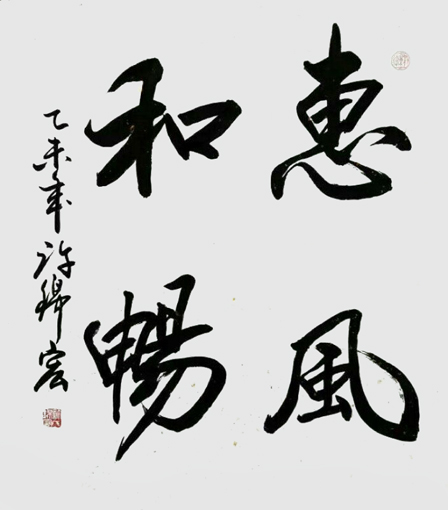 惠風
和暢
乙未年許錦宏